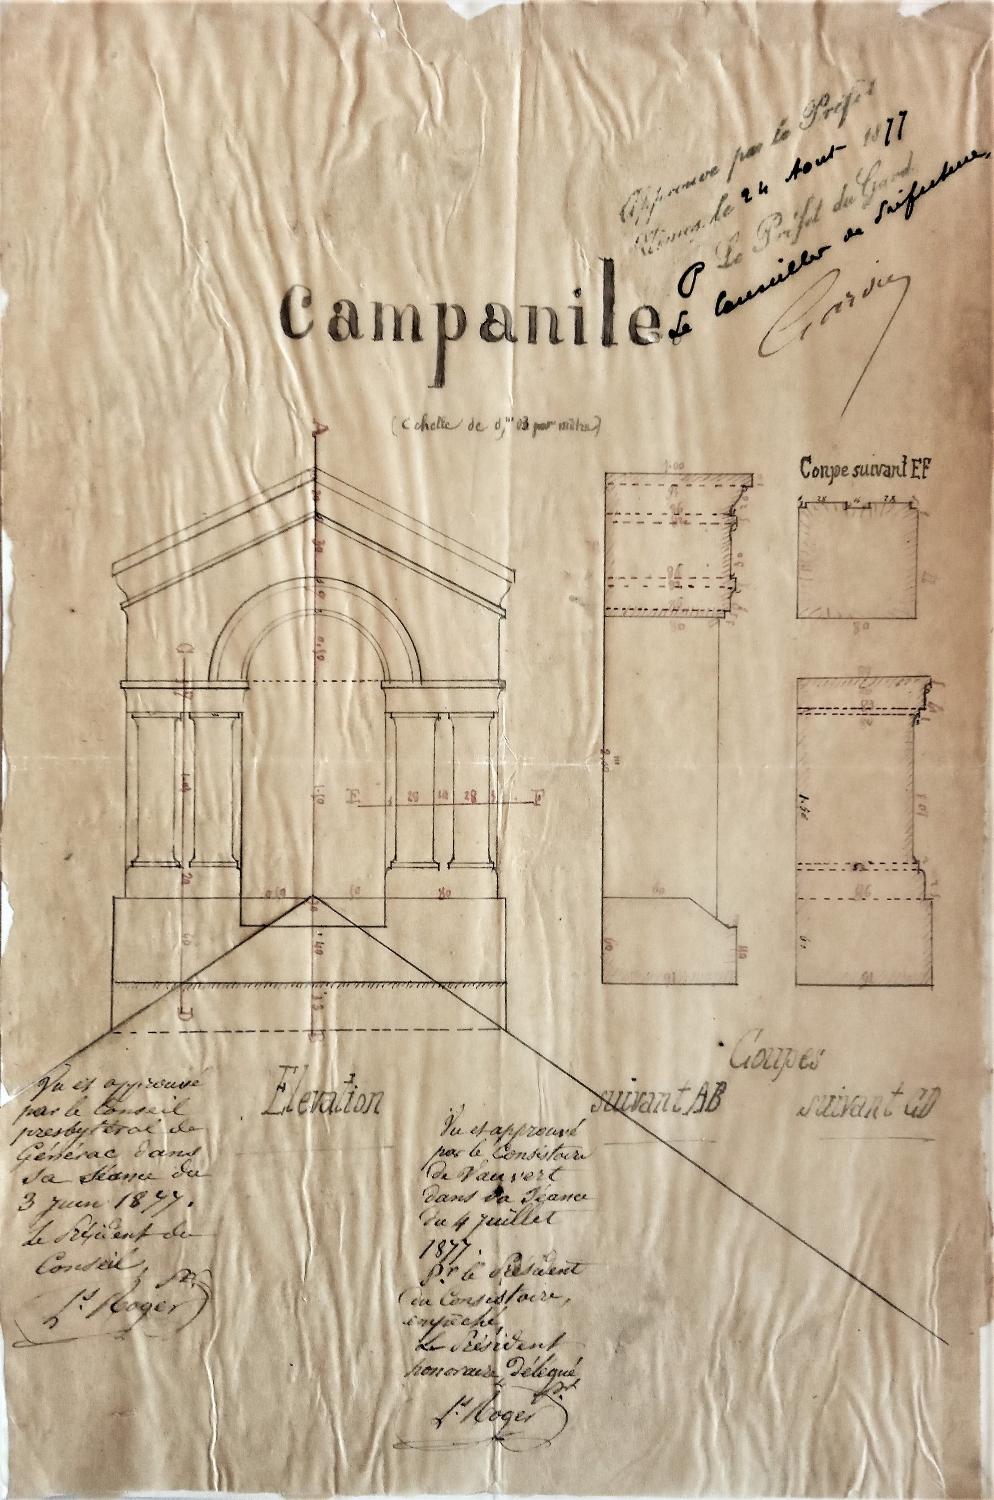 Approuvé par le Préfet
Nîmes, le 24 Aout 1877
Le Préfet du Gard
P
Le Conseiller de Préfecture,
Campanile.
(Echelle de 0,m 03 par mètre)
A
Coupe suivant EF
1.00
28
28
80
C
0.70
1.50
E
28
10
28
F
2.00
1.50
1.01
20
60
80
60
60
40
1.40
D
B
Elevation
Coupes
suivant AB
suivant CD
Vu et approuvé
par le Conseil
presbytéral de
Générac dans
sa séance du
3 juin 1877.
Le Président du
Conseil,
Ls Roger pr
Vu et approuvé
par le Consistoire
de Vauvert
dans sa Séance
du 4 juillet
1877.
Pr le Président
du Consistoire,
empêché,
Le Président
honoraire, délégué,
Ls Roger pr